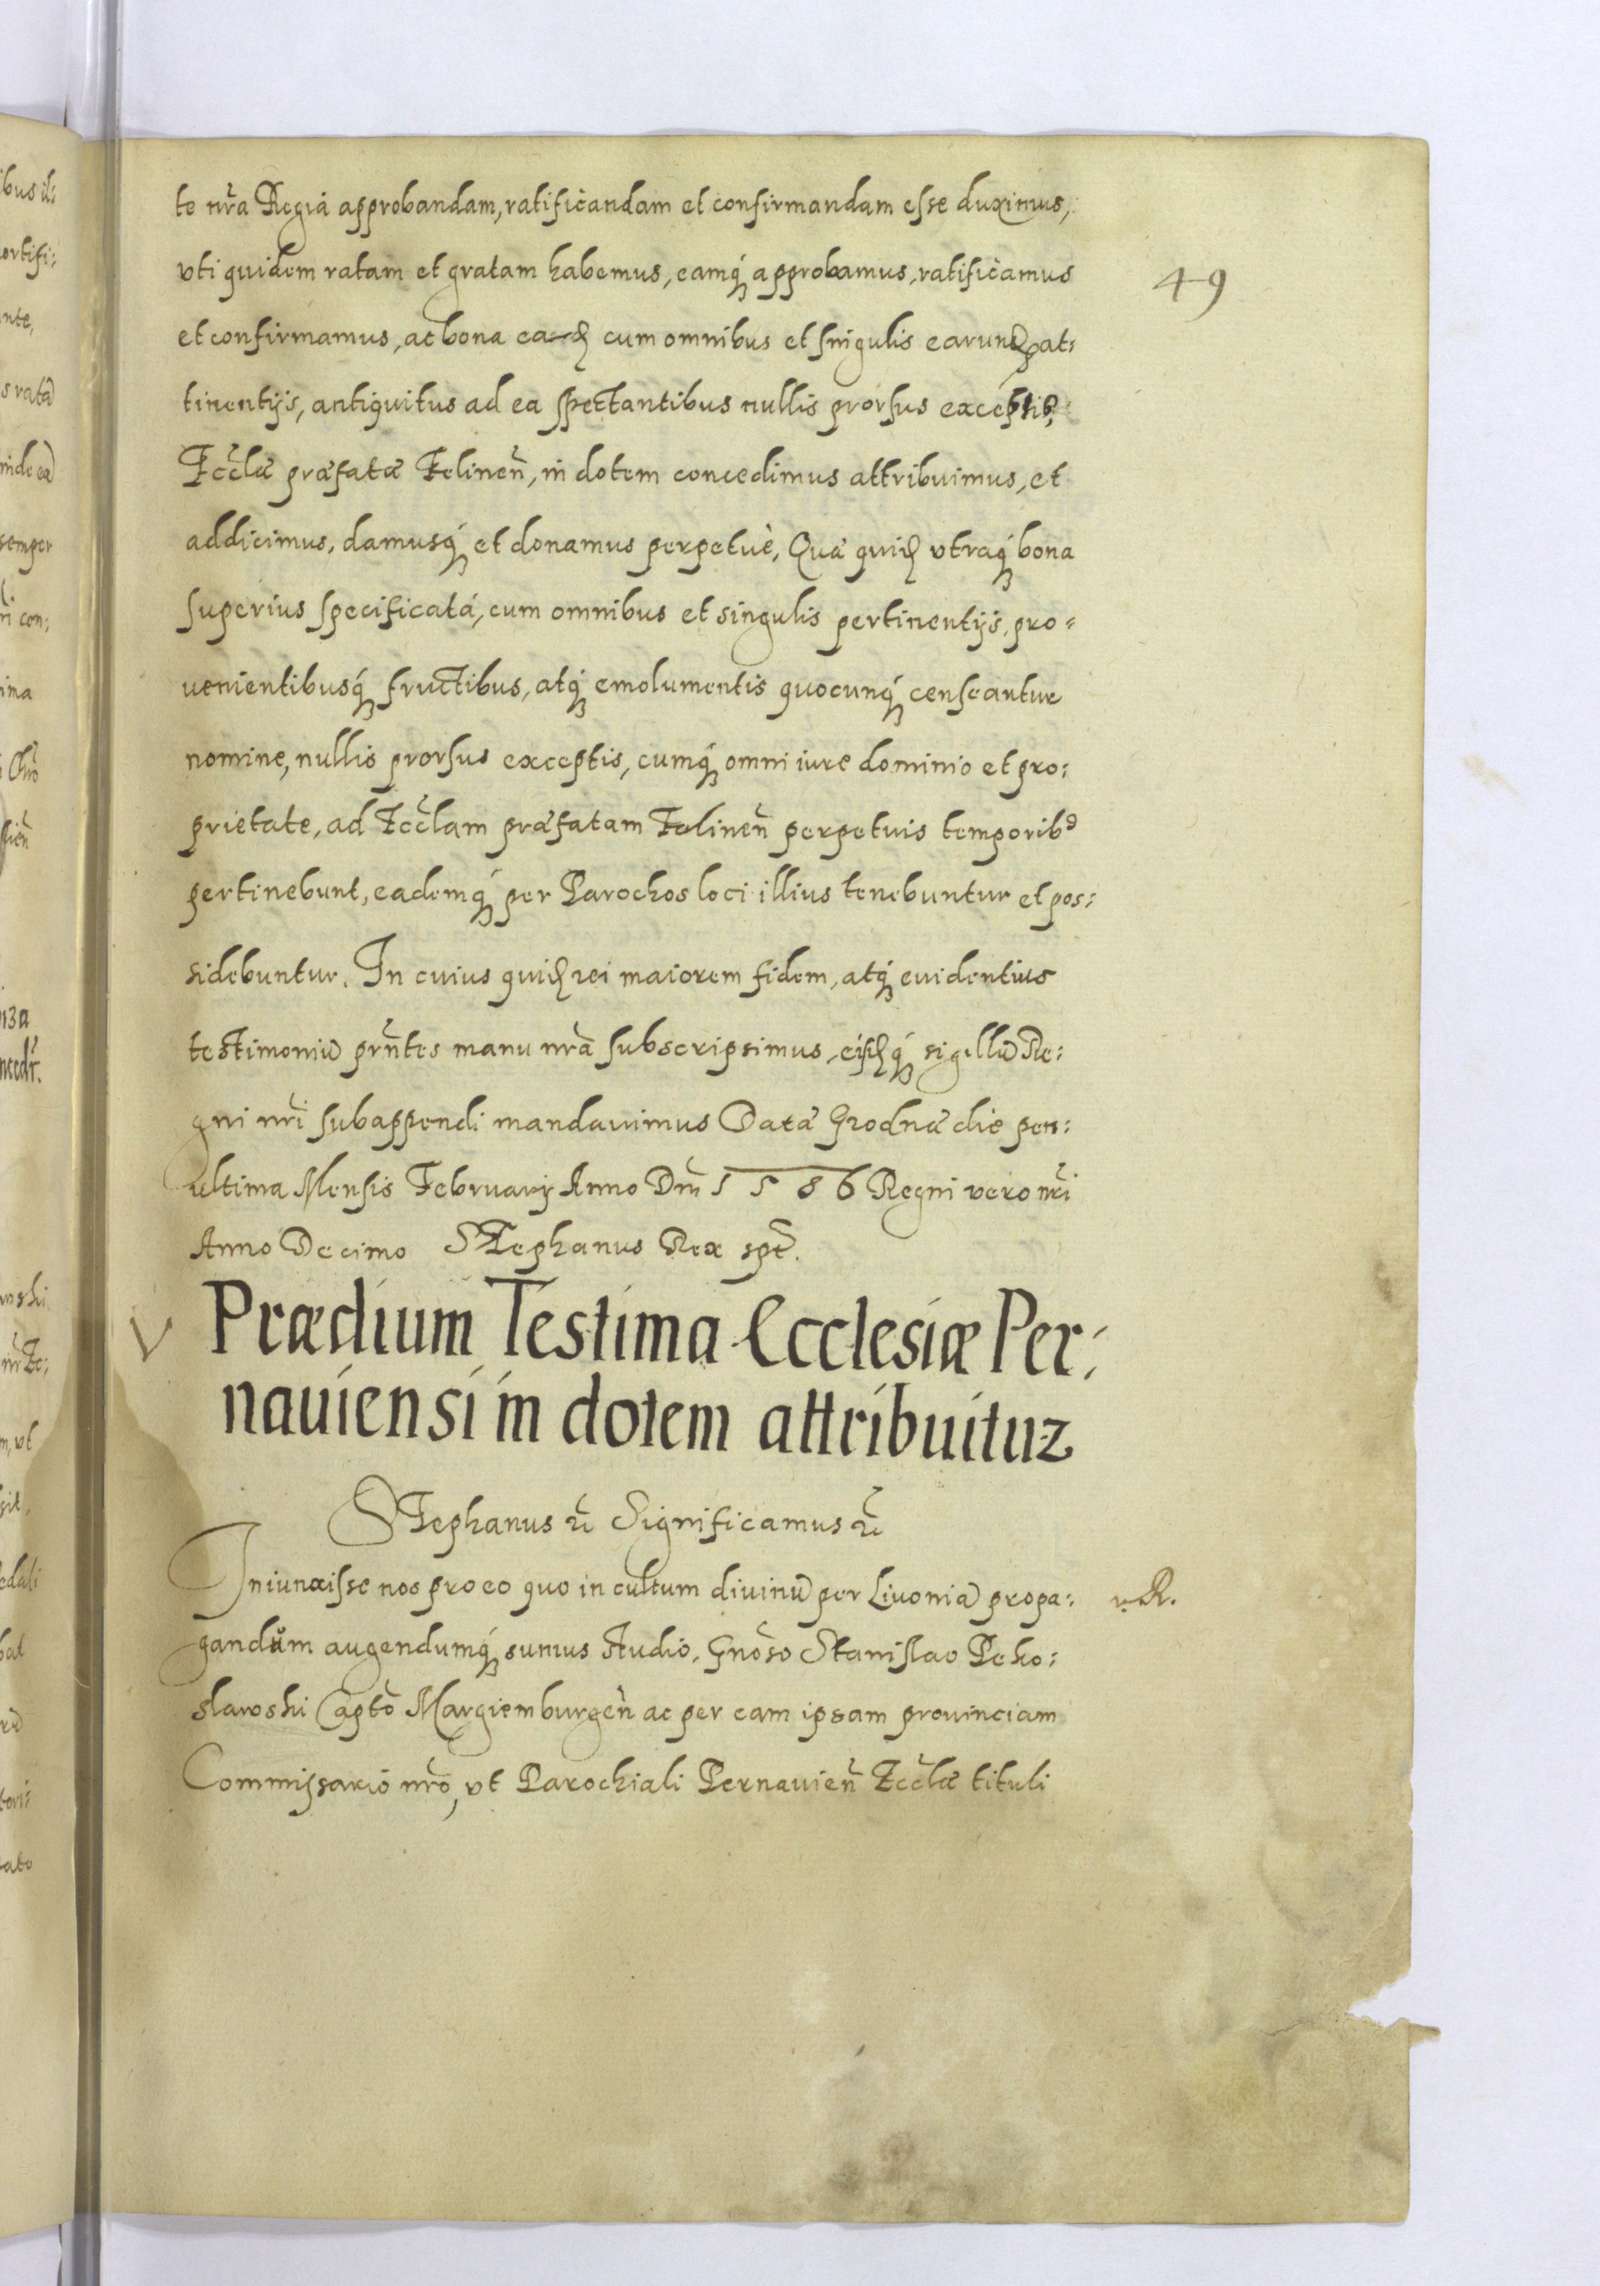 te nr̃a Regia approbandam, ratificandam et confirmandam esse duximus,
vti quidem ratam et gratam habemus, eamq́ȝ approbamus, ratificamus
49
et confirmamus, ac bona cum omnibus et singulis earund at:
tinentijs, antiquitus ad ea spectantibus nullis prorsus exceptis,
Eccl̃æ præfatæ Felinen̄, in dotem concedimus attribuimus, et
addicimus, damusq́ȝ et donamus perpetuè, Quæ quiđ vtraq́ȝ bona
superius specificata, cum omnibus et singulis pertinentijs, pro=
uenientibusq́ȝ fructibus, atq́ȝ emolumentis quocunq́ȝ censeantur
nomine, nullis prorsus exceptis, cumq́ȝ omni iure dominio et pro:
prietate, ad Eccl̃am præfatam Felinen̄ perpetuis temporibꝰ
pertinebunt, eademq́ȝ per Parochos loci illius tenebuntur et pos:
sidebuntur. In cuius quiđ rei maiorem fidem, atq́ȝ euidentius
testimoniū pr̃ntes manu nr̃a subscripsimus, eisđq́ȝ sigillū Re:
gni nr̃i subappendi mandauimus Datæ Grodnæ die pen:
ultima Mensis Februarij Anno Dn̄i 1586 Regni vero nr̃i
Anno Decimo Stephanus Rex spt̃.
V Prædium Testima Ecclesiæ Per:
nauiensi in dotem attribuitur
Stephanus ꝛc̃ Significamus ꝛc̃
Iniunxisse nos pro eo quo in cultum diuinū per Liuoniā propa:
v. R.
gandum augendumq́ȝ sumus studio, Gnõso Stanislao Peko:
slawski Captõ Margiemburgeñ ac per eam ipsam prouinciam
Commissario nr̃o, vt Parochiali Pernauien̄ Eccl̃æ tituli